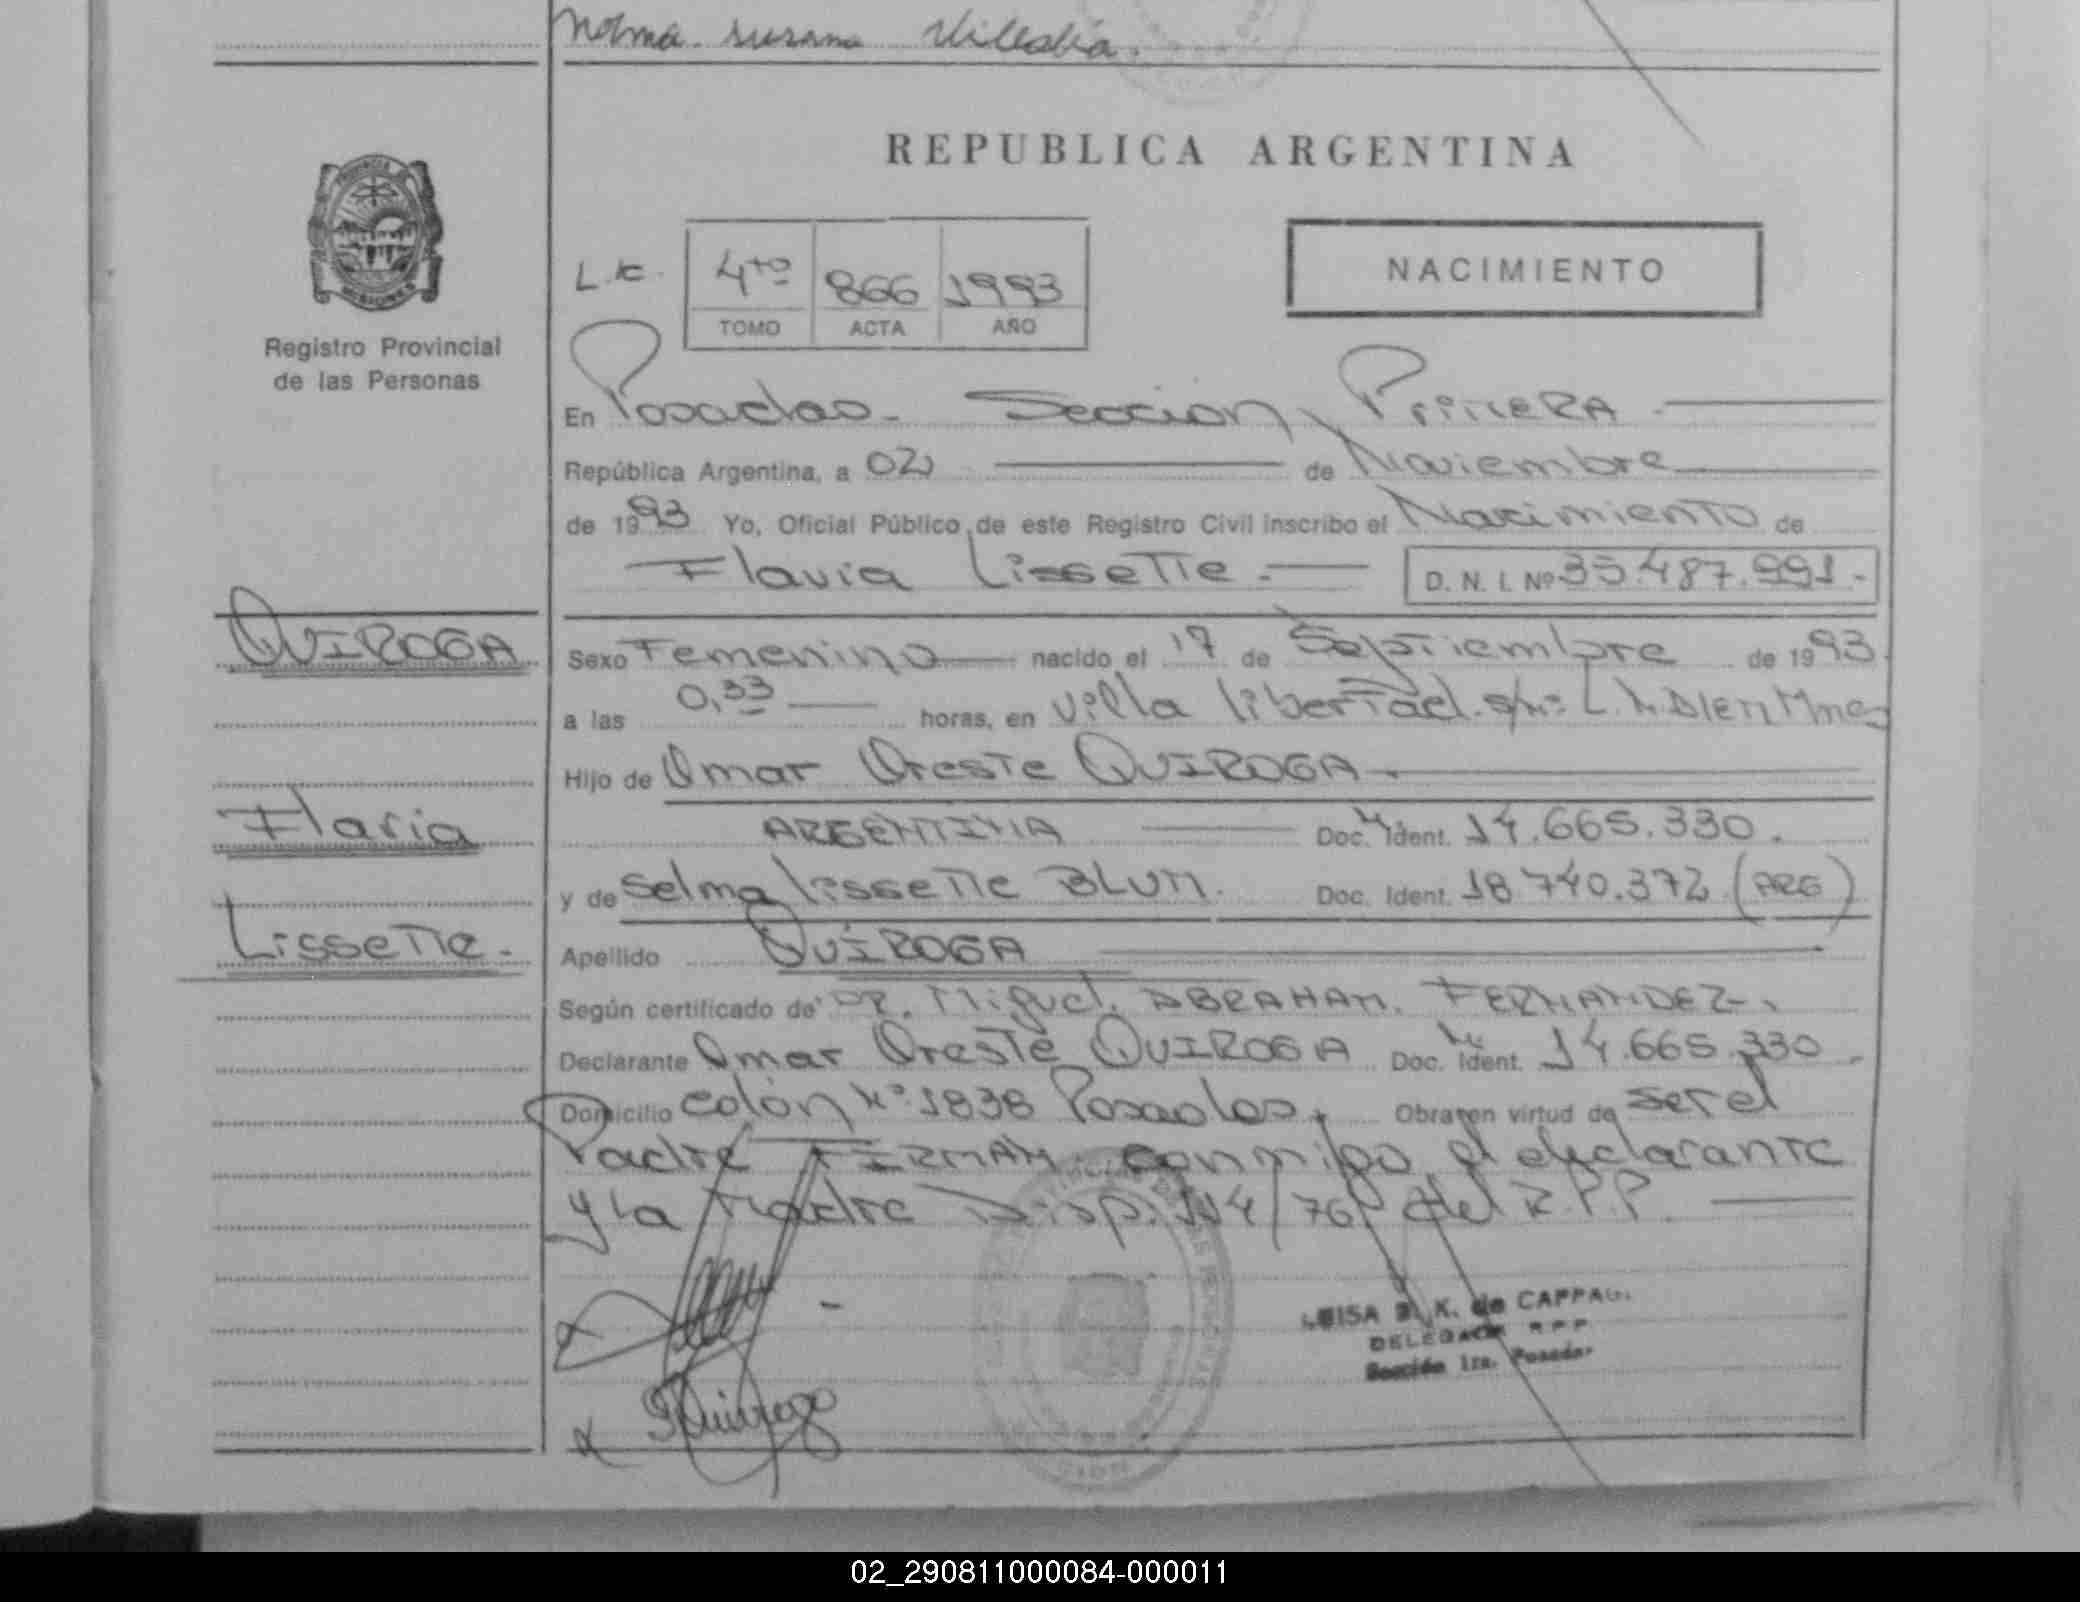 Norma Susana
REPUBLICA ARGENTINA
PROVINCIA
MISIONES
Registro Provincial
de las Personas
L.C.
4to 866 1993
TOMO ACTA AÑO
NACIMIENTO
En Posadas - Sección Primera
República Argentina, a 02 de Noviembre
de 1993 Yo, Oficial Público de este Registro Civil inscribo el Nacimiento de
Flavia Lissette. D. N. I. Nº 35.487.991.-
QUIROGA
Sexo Femenino nacido el 17 de Septiembre de 1993
a las 0,33 horas, en Villa Libertad. s/nº L. N. Alen Mnes
Hijo de Omar Oreste QUIROGA
Flavia
ARGENTINA Doc. Ident. 14.665.330.
y de Selma Lissette BLUM. Doc. Ident. 18.740.372 (ARG)
Lissette.
Apellido QUIROGA
Según certificado de Dr. Miguel ABRAHAM FERNANDEZ.
Declarante Omar Oreste QUIROGA Doc. Ident. 14.665.330.
Domicilio Colón Nº 1838 Posadas. Obra en virtud de ser el
Padre FIRMAN conmigo el declarante
y la Madre Disp. 114/76 del R.P.P.
LUISA B. K. de CAPPAG
DELEGADA R.P.P.
Sección 1ra. Posadas
02_290811000084-000011